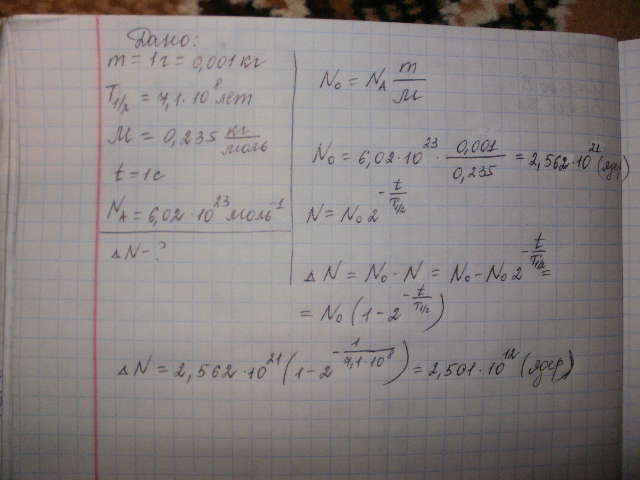 Дано:
m = 1г = 0,001 кг
T₁/₂ = 7,1·10⁸ лет
M = 0,235 кг/моль
t = 1с
N_A = 6,02·10²³ моль⁻¹
ΔN - ?
N₀ = N_A m/M
N₀ = 6,02·10²³ · 0,001/0,235 = 2,562·10²¹ (ядер)
N = N₀ 2^(-t/T₁/₂)
ΔN = N₀ - N = N₀ - N₀ 2^(-t/T₁/₂) =
= N₀ (1 - 2^(-t/T₁/₂))
ΔN = 2,562·10²¹ (1 - 2^(-1/7,1·10⁸)) = 2,501·10¹² (ядер)